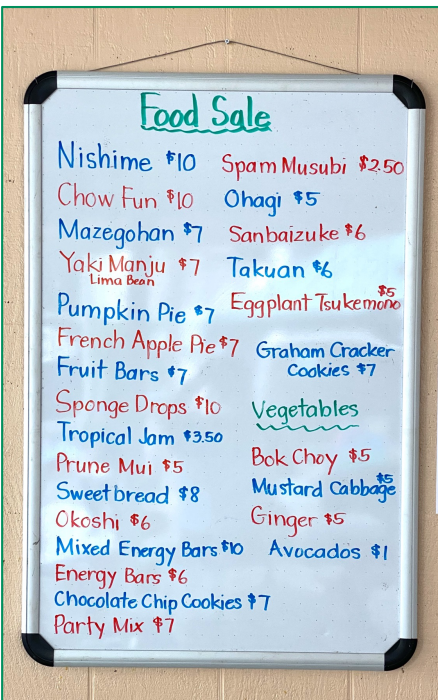 Food Sale
Nishime $10
Chow Fun $10
Mazegohan $7
Yaki Manju $7
Lima Bean
Pumpkin Pie $7
French Apple Pie $7
Fruit Bars $7
Sponge Drops $10
Tropical Jam $3.50
Prune Mui $5
Sweetbread $8
Okoshi $6
Mixed Energy Bars $10
Energy Bars $6
Chocolate Chip Cookies $7
Party Mix $7
Spam Musubi $2.50
Ohagi $5
Sanbaizuke $6
Takuan $6
Eggplant Tsukemono $5
Graham Cracker
Cookies $7
Vegetables
Bok Choy $5
Mustard Cabbage $5
Ginger $5
Avocados $1